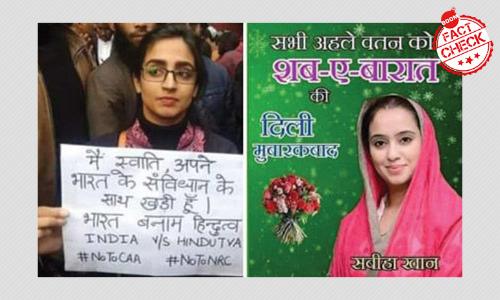 मैं स्वाति, अपने
भारत के संविधान के
साथ खड़ी हूँ।
भारत बनाम हिन्दुत्व
INDIA V/S HINDUTVA
#NoToCAA #NoToNRC
सभी अहले वतन को
शब-ए-बारात
की
दिली
मुबारकबाद
सबीहा खान
BOOM
FACT
CHECK